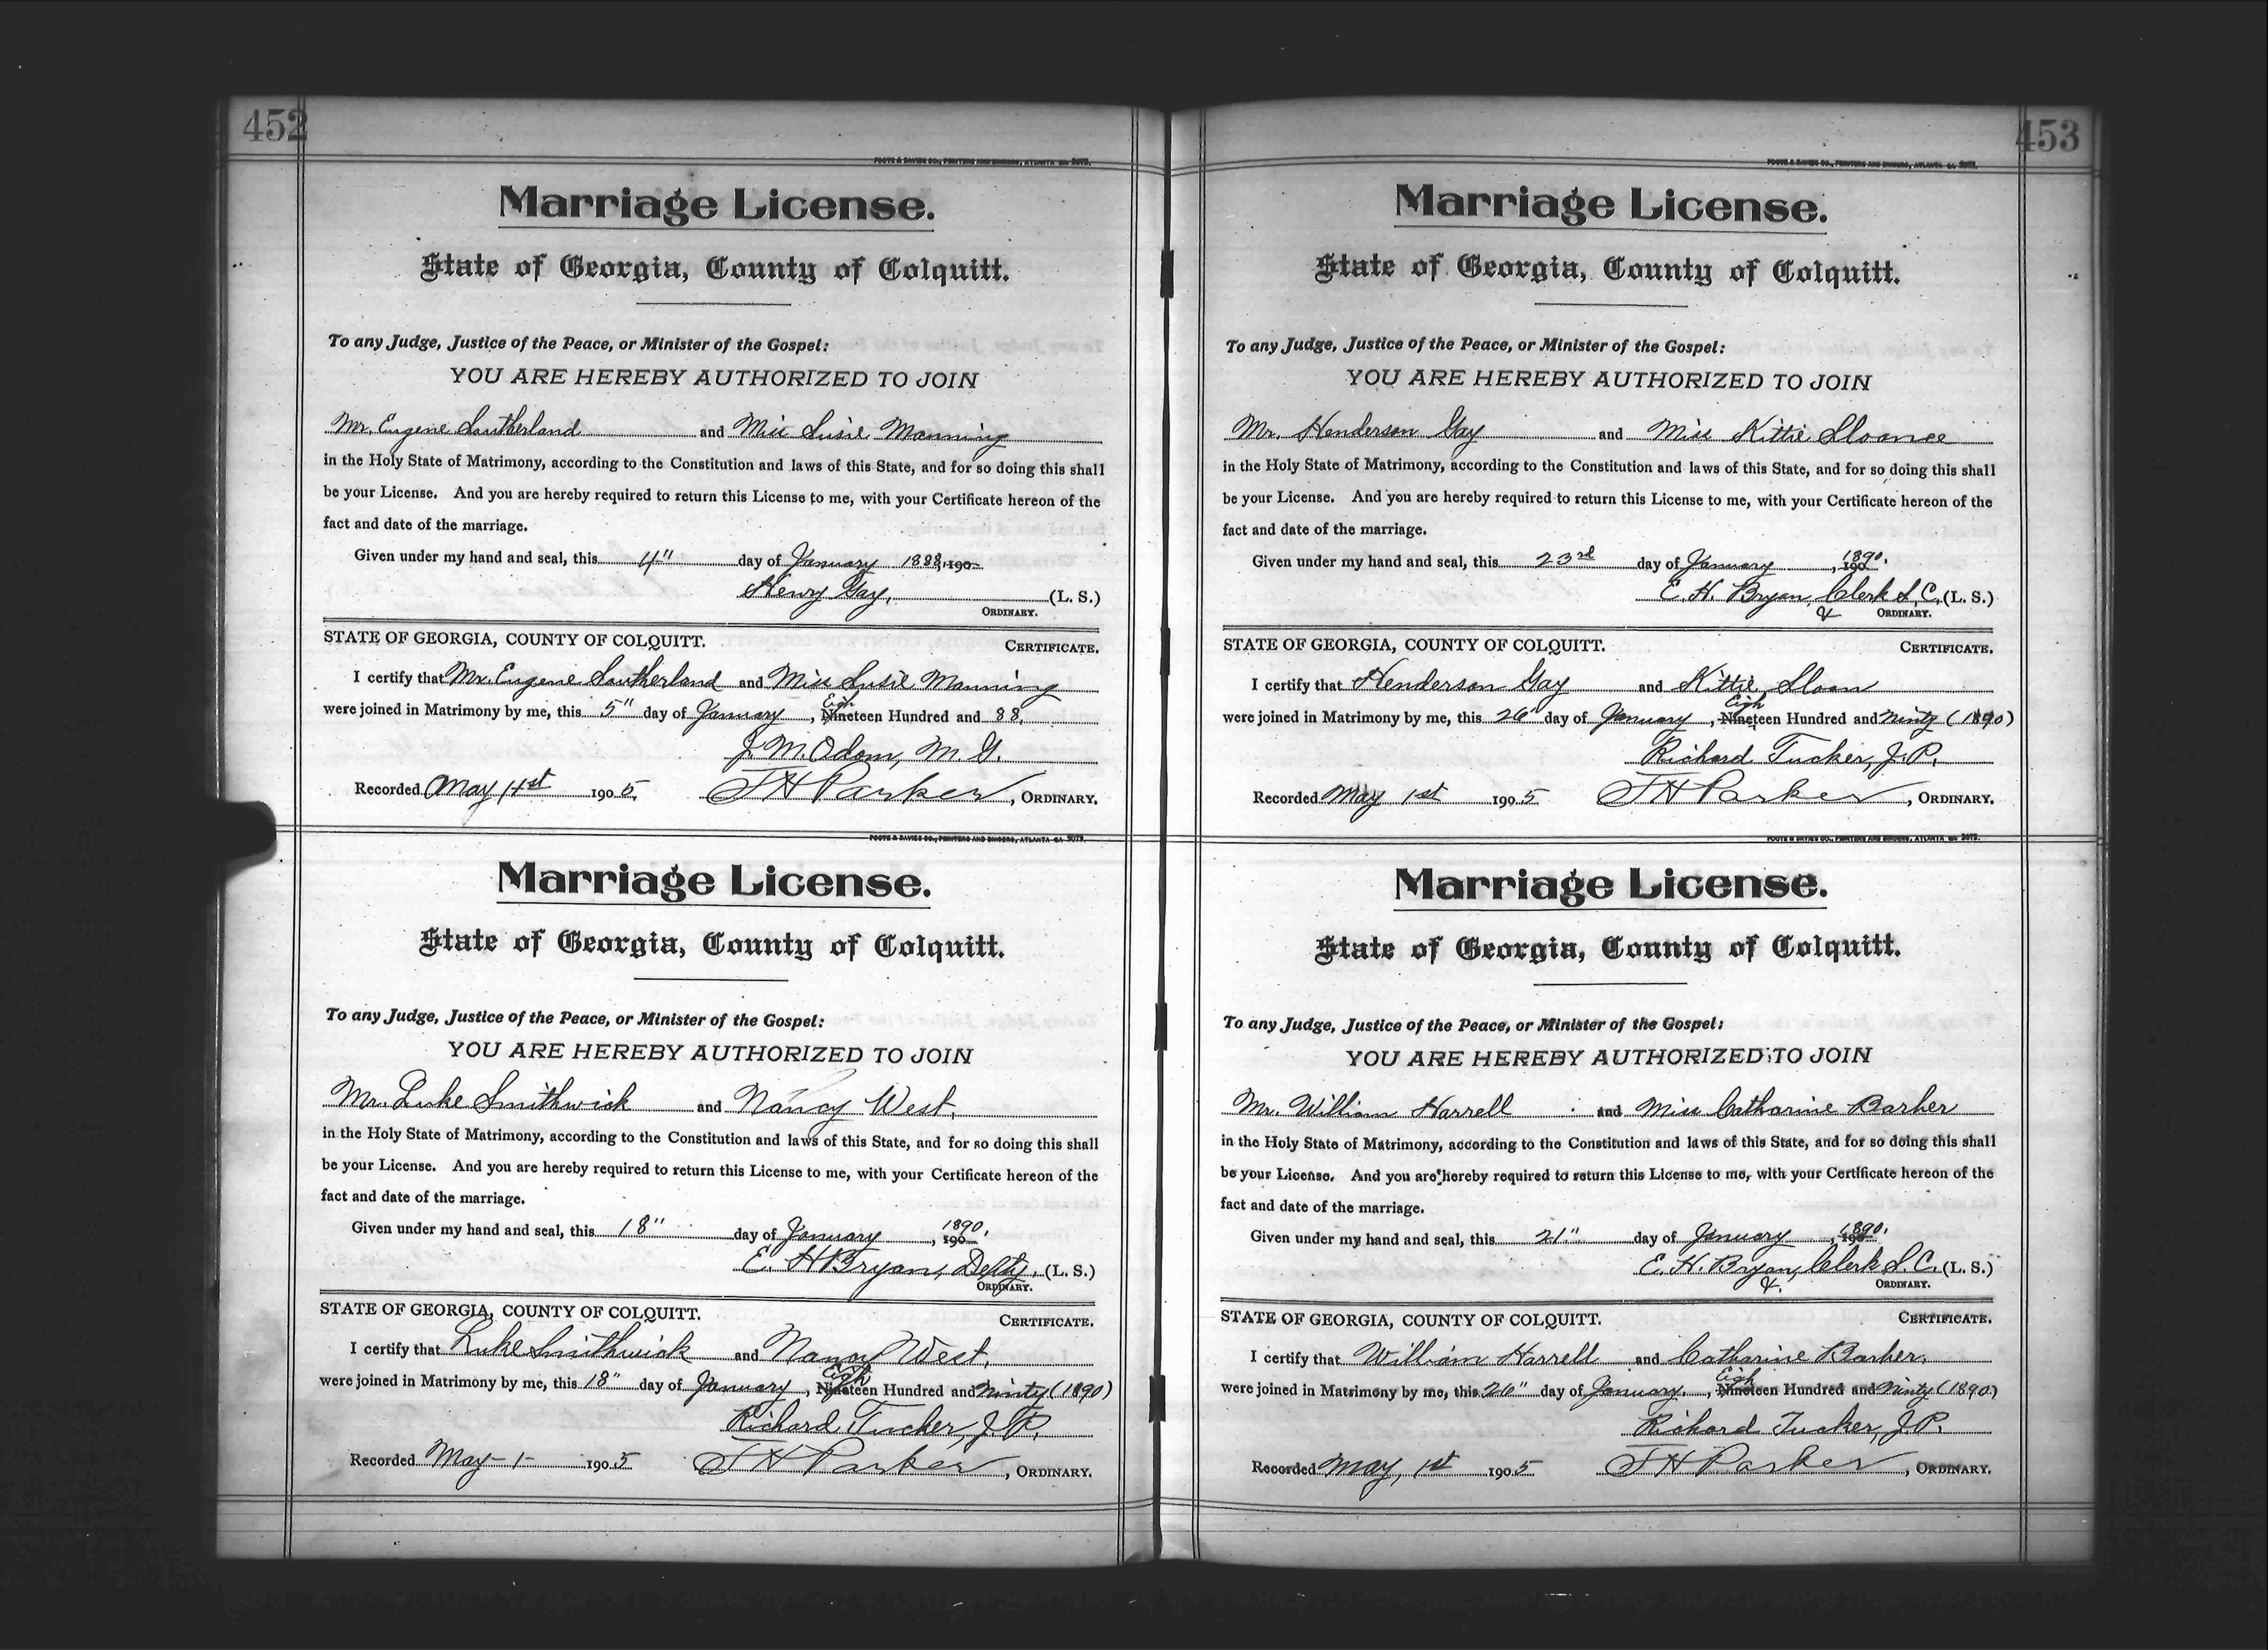 452
FOOTE & DAVIES CO., PRINTERS AND BINDERS, ATLANTA GA
Marriage License.
State of Georgia, County of Colquitt.
To any Judge, Justice of the Peace, or Minister of the Gospel:
YOU ARE HEREBY AUTHORIZED TO JOIN
Mr. Eugene Sautherland and Miss Susie Manning
in the Holy State of Matrimony, according to the Constitution and laws of this State, and for so doing this shall
be your License. And you are hereby required to return this License to me, with your Certificate hereon of the
fact and date of the marriage.
Given under my hand and seal, this 4" day of January 1888, 190
Henry Gay, (L. S.)
ORDINARY.
STATE OF GEORGIA, COUNTY OF COLQUITT. CERTIFICATE.
I certify that Mr. Eugene Sautherland and Miss Susie Manning
were joined in Matrimony by me, this 5" day of January, Eighteen Hundred and 88.
J. M. Odom, M. G.
Recorded May 1st 1905, T H Parker, ORDINARY.
FOOTE & DAVIES CO., PRINTERS AND BINDERS, ATLANTA GA
Marriage License.
State of Georgia, County of Colquitt.
To any Judge, Justice of the Peace, or Minister of the Gospel:
YOU ARE HEREBY AUTHORIZED TO JOIN
Mr. Luke Smithwick and Nancy West,
in the Holy State of Matrimony, according to the Constitution and laws of this State, and for so doing this shall
be your License. And you are hereby required to return this License to me, with your Certificate hereon of the
fact and date of the marriage.
Given under my hand and seal, this 18" day of January, 1890,
E. H Bryan, Depty, (L. S.)
ORDINARY.
STATE OF GEORGIA, COUNTY OF COLQUITT. CERTIFICATE.
I certify that Luke Smithwick and Nancy West,
were joined in Matrimony by me, this 18" day of January, Eighteen Hundred and Ninty (1890)
Richard Tucker, J. P.
Recorded May-1- 1905 T H Parker, ORDINARY.
453
FOOTE & DAVIES CO., PRINTERS AND BINDERS, ATLANTA GA
Marriage License.
State of Georgia, County of Colquitt.
To any Judge, Justice of the Peace, or Minister of the Gospel:
YOU ARE HEREBY AUTHORIZED TO JOIN
Mr. Henderson Gay and Miss Kittie Sloanee
in the Holy State of Matrimony, according to the Constitution and laws of this State, and for so doing this shall
be your License. And you are hereby required to return this License to me, with your Certificate hereon of the
fact and date of the marriage.
Given under my hand and seal, this 23rd day of January, 1890.
E. H. Bryan, Clerk S. C. (L. S.)
& ORDINARY.
STATE OF GEORGIA, COUNTY OF COLQUITT. CERTIFICATE.
I certify that Henderson Gay and Kittie Sloan
were joined in Matrimony by me, this 26" day of January, Eighteen Hundred and Ninty (1890)
Richard Tucker, J. P.
Recorded May 1st 1905 T H Parker, ORDINARY.
FOOTE & DAVIES CO., PRINTERS AND BINDERS, ATLANTA GA
Marriage License.
State of Georgia, County of Colquitt.
To any Judge, Justice of the Peace, or Minister of the Gospel:
YOU ARE HEREBY AUTHORIZED TO JOIN
Mr. William Harrell and Miss Catharine Barker
in the Holy State of Matrimony, according to the Constitution and laws of this State, and for so doing this shall
be your License. And you are hereby required to return this License to me, with your Certificate hereon of the
fact and date of the marriage.
Given under my hand and seal, this 21" day of January, 1890,
E. H. Bryan, Clerk S. C. (L. S.)
&. ORDINARY.
STATE OF GEORGIA, COUNTY OF COLQUITT. CERTIFICATE.
I certify that William Harrell and Catharine Barker,
were joined in Matrimony by me, this 26" day of January, Eighteen Hundred and Ninty (1890)
Richard Tucker, J. P.
Recorded May, 1st 1905 T H Parker, ORDINARY.